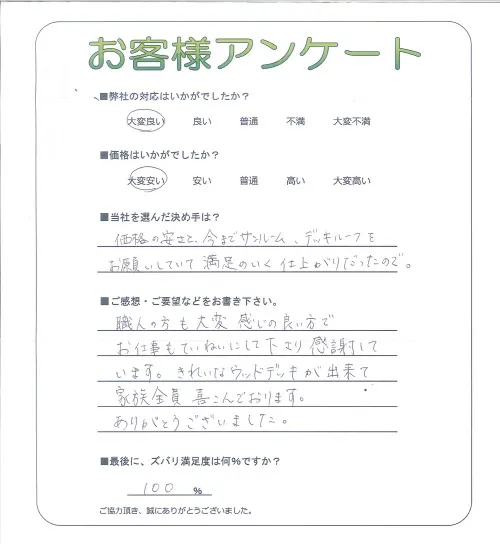 お客様アンケート
■弊社の対応はいかがでしたか？
大変良い 良い 普通 不満 大変不満
■価格はいかがでしたか？
大変安い 安い 普通 高い 大変高い
■当社を選んだ決め手は？
価格の安さと、今までサンルーム、デッキルーフを
お願いしていて満足のいく仕上がりだったので。
■ご感想・ご要望などをお書き下さい。
職人の方も大変感じの良い方で
お仕事もていねいにして下さり感謝して
います。きれいなウッドデッキが出来て
家族全員喜こんでおります。
ありがとうございました。
■最後に、ズバリ満足度は何%ですか？
100 %
ご協力頂き、誠にありがとうございました。